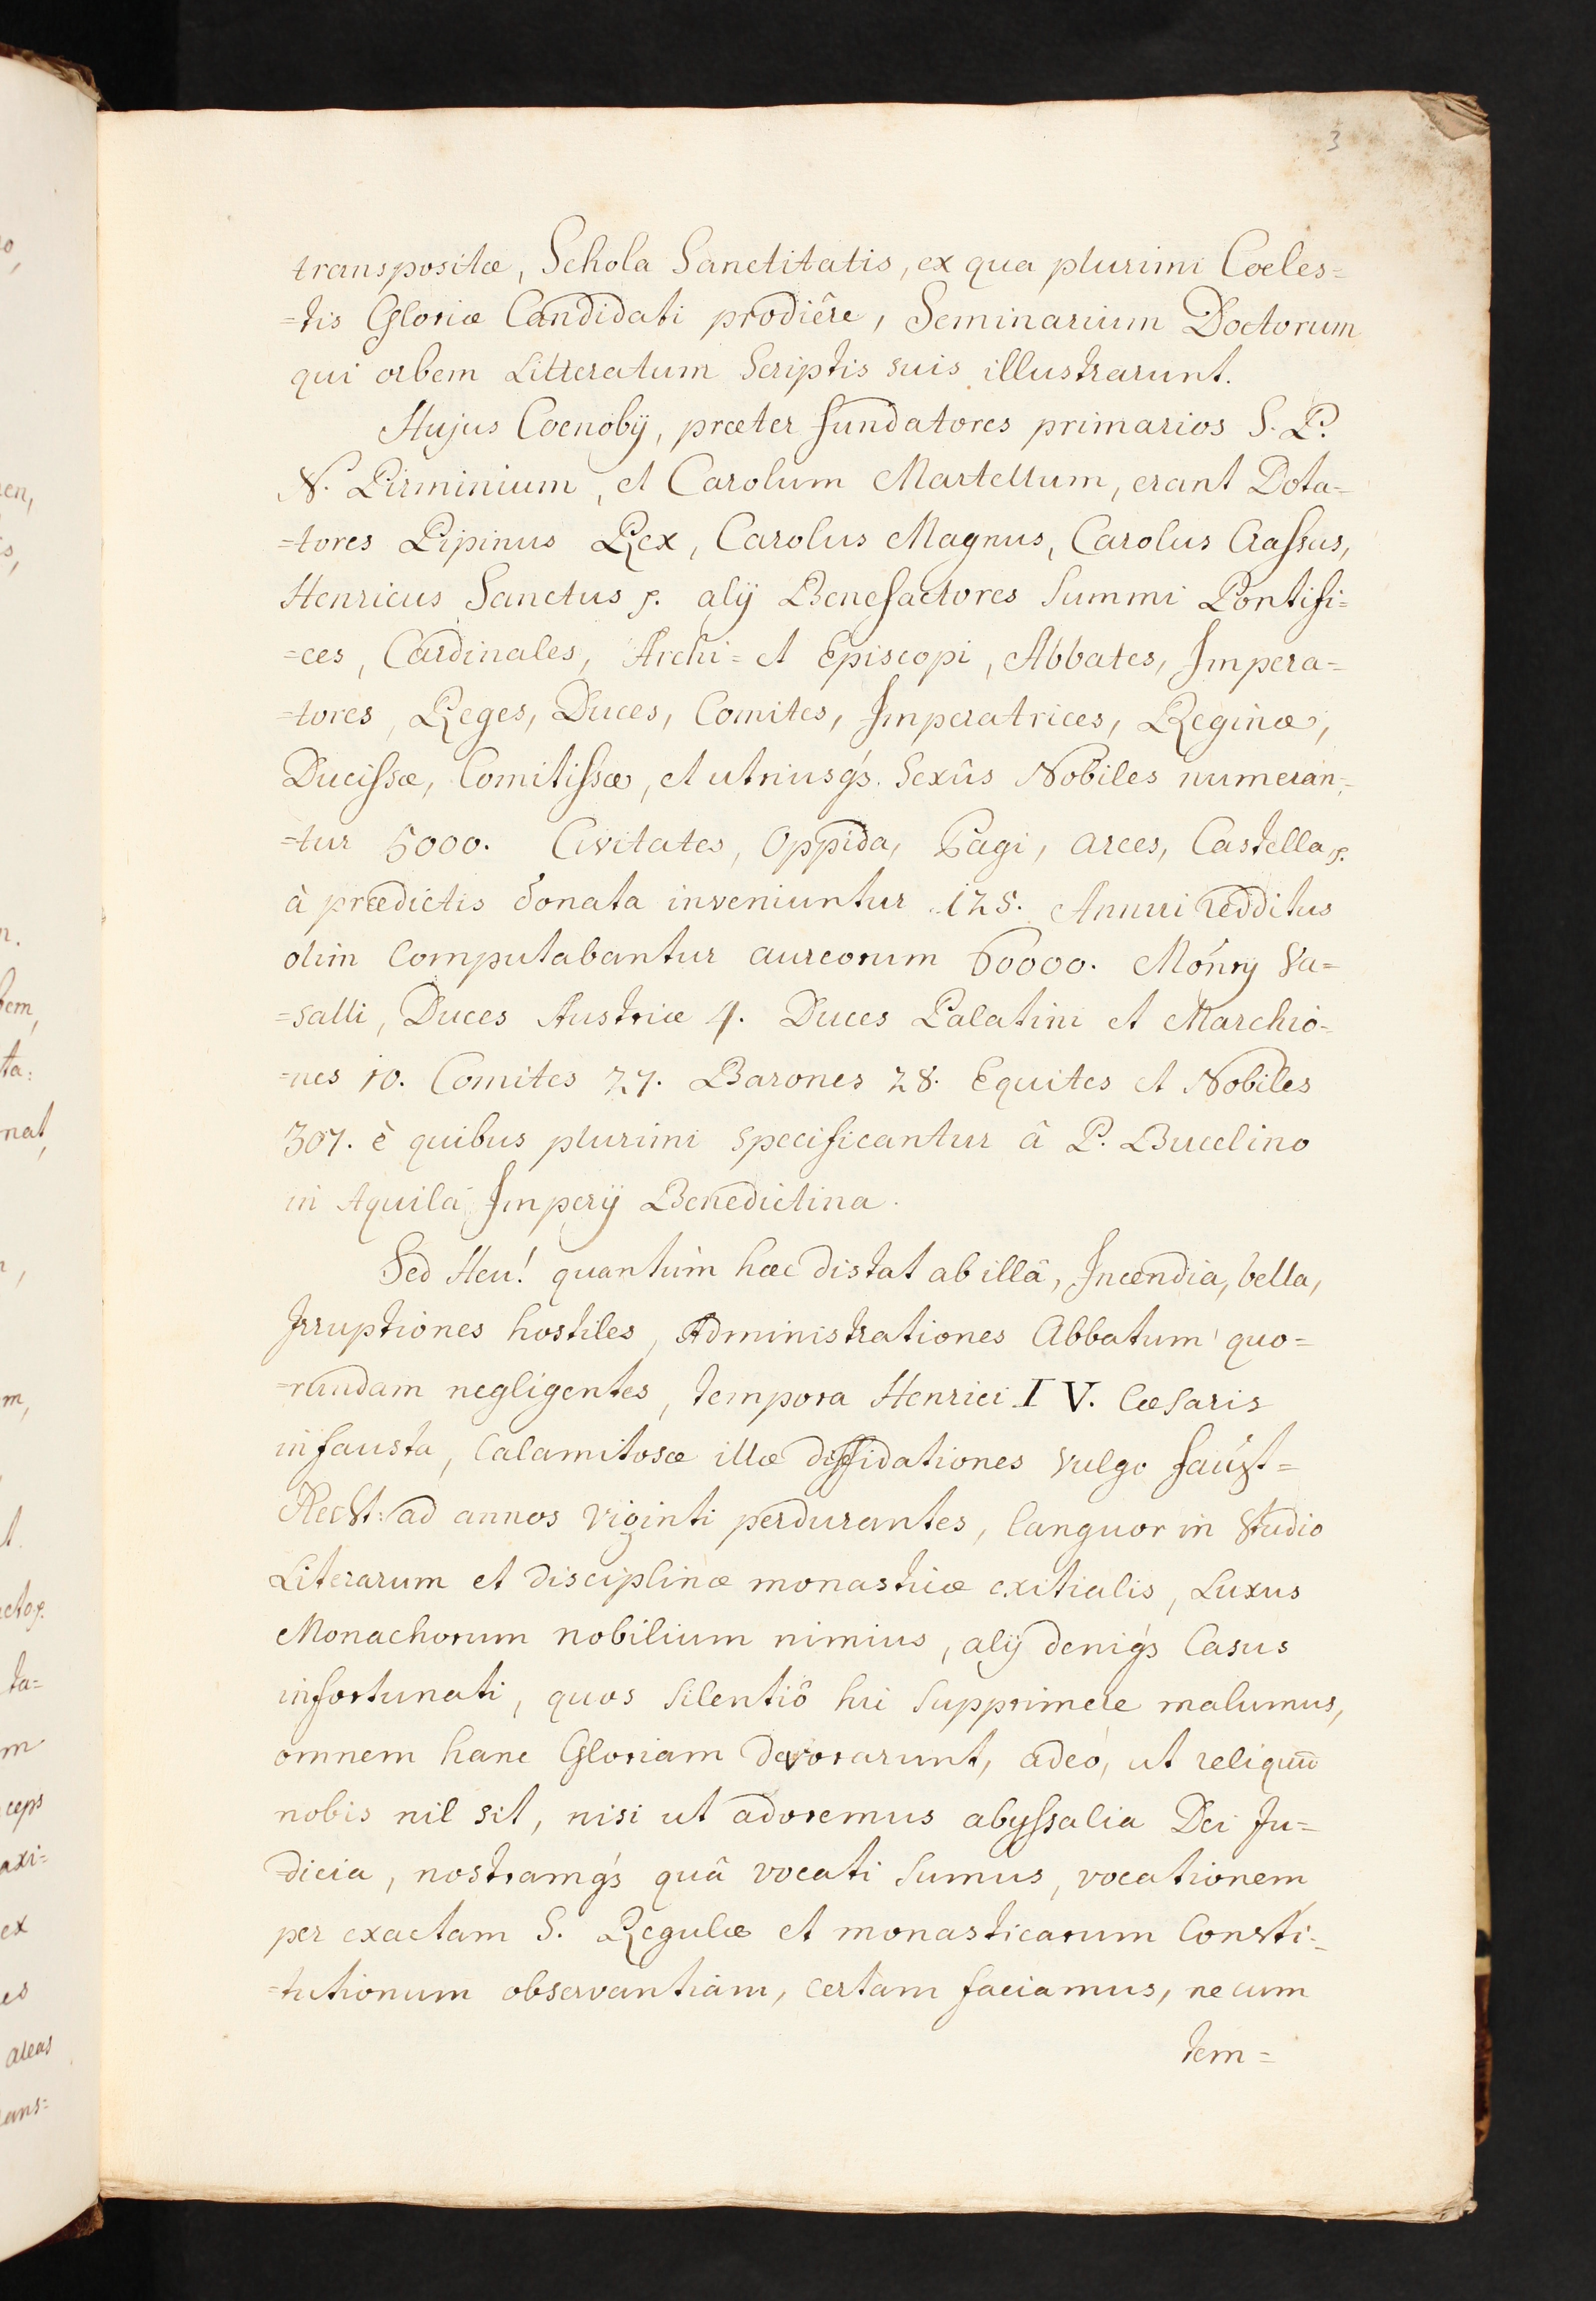 3
transpositæ, Schola Sanctitatis, ex qua plurimi Coeles=
=tis Gloriæ Candidati prodiêre, Seminarium Doctorum
qui orbem Litteratum Scriptis suis illustrarunt.
Hujus Coenobÿ, præter fundatores primarios S. P.
N. Pirminium, et Carolum Martellum, erant Dota=
=tores Pipinus Rex, Carolus Magnus, Carolus Crassus,
Henricus Sanctus p. alÿ Benefactores Summi Pontifi=
=ces, Cardinales, Archi= et Episcopi, Abbates, Impera=
=tores, Reges, Duces, Comites, Imperatrices, Reginæ,
Ducissæ, Comitissæ, et utriusq́s. Sexûs Nobiles numeran=
=tur 5000. Civitates, Oppida, Pagi, arces, Castella p.
à prædictis donata inveniuntur 125. Annui redditus
olim Computabantur aureorum 60000. Monrÿ Va=
=salli, Duces Austriæ 4. Duces Palatini et Marchio=
=nes 10. Comites 27. Barones 28. Equites et Nobiles
307. è quibus plurimi specificantur â P. Bucelino
in Aquilâ Imperÿ Benedictina.
Sed Heu! quantùm hæc distat ab illâ, Incendia, bella,
Irruptiones hostiles, Administrationes Abbatum quo=
=rundam negligentes, tempora Henrici IV. Cæsaris
infausta, Calamitosæ illæ diffidationes vulgo faust=
Recht: ad annos viginti perdurantes, languor in Studio
Literarum et disciplinæ monasticæ exitialis, Luxus
Monachorum nobilium nimius, alÿ deniq́s Casus
infortunati, quos silentiô hic Supprimere malumus,
omnem hanc Gloriam devorarunt, adeò, ut reliquū
nobis nil sit, nisi ut adoremus abyssalia Dei Ju=
=dicia, nostramq́s quâ vocati Sumus, vocationem
per exactam S. Regulæ et monasticarum Consti=
=tutionum observantiam, certam faciamus, ne cum
tem=